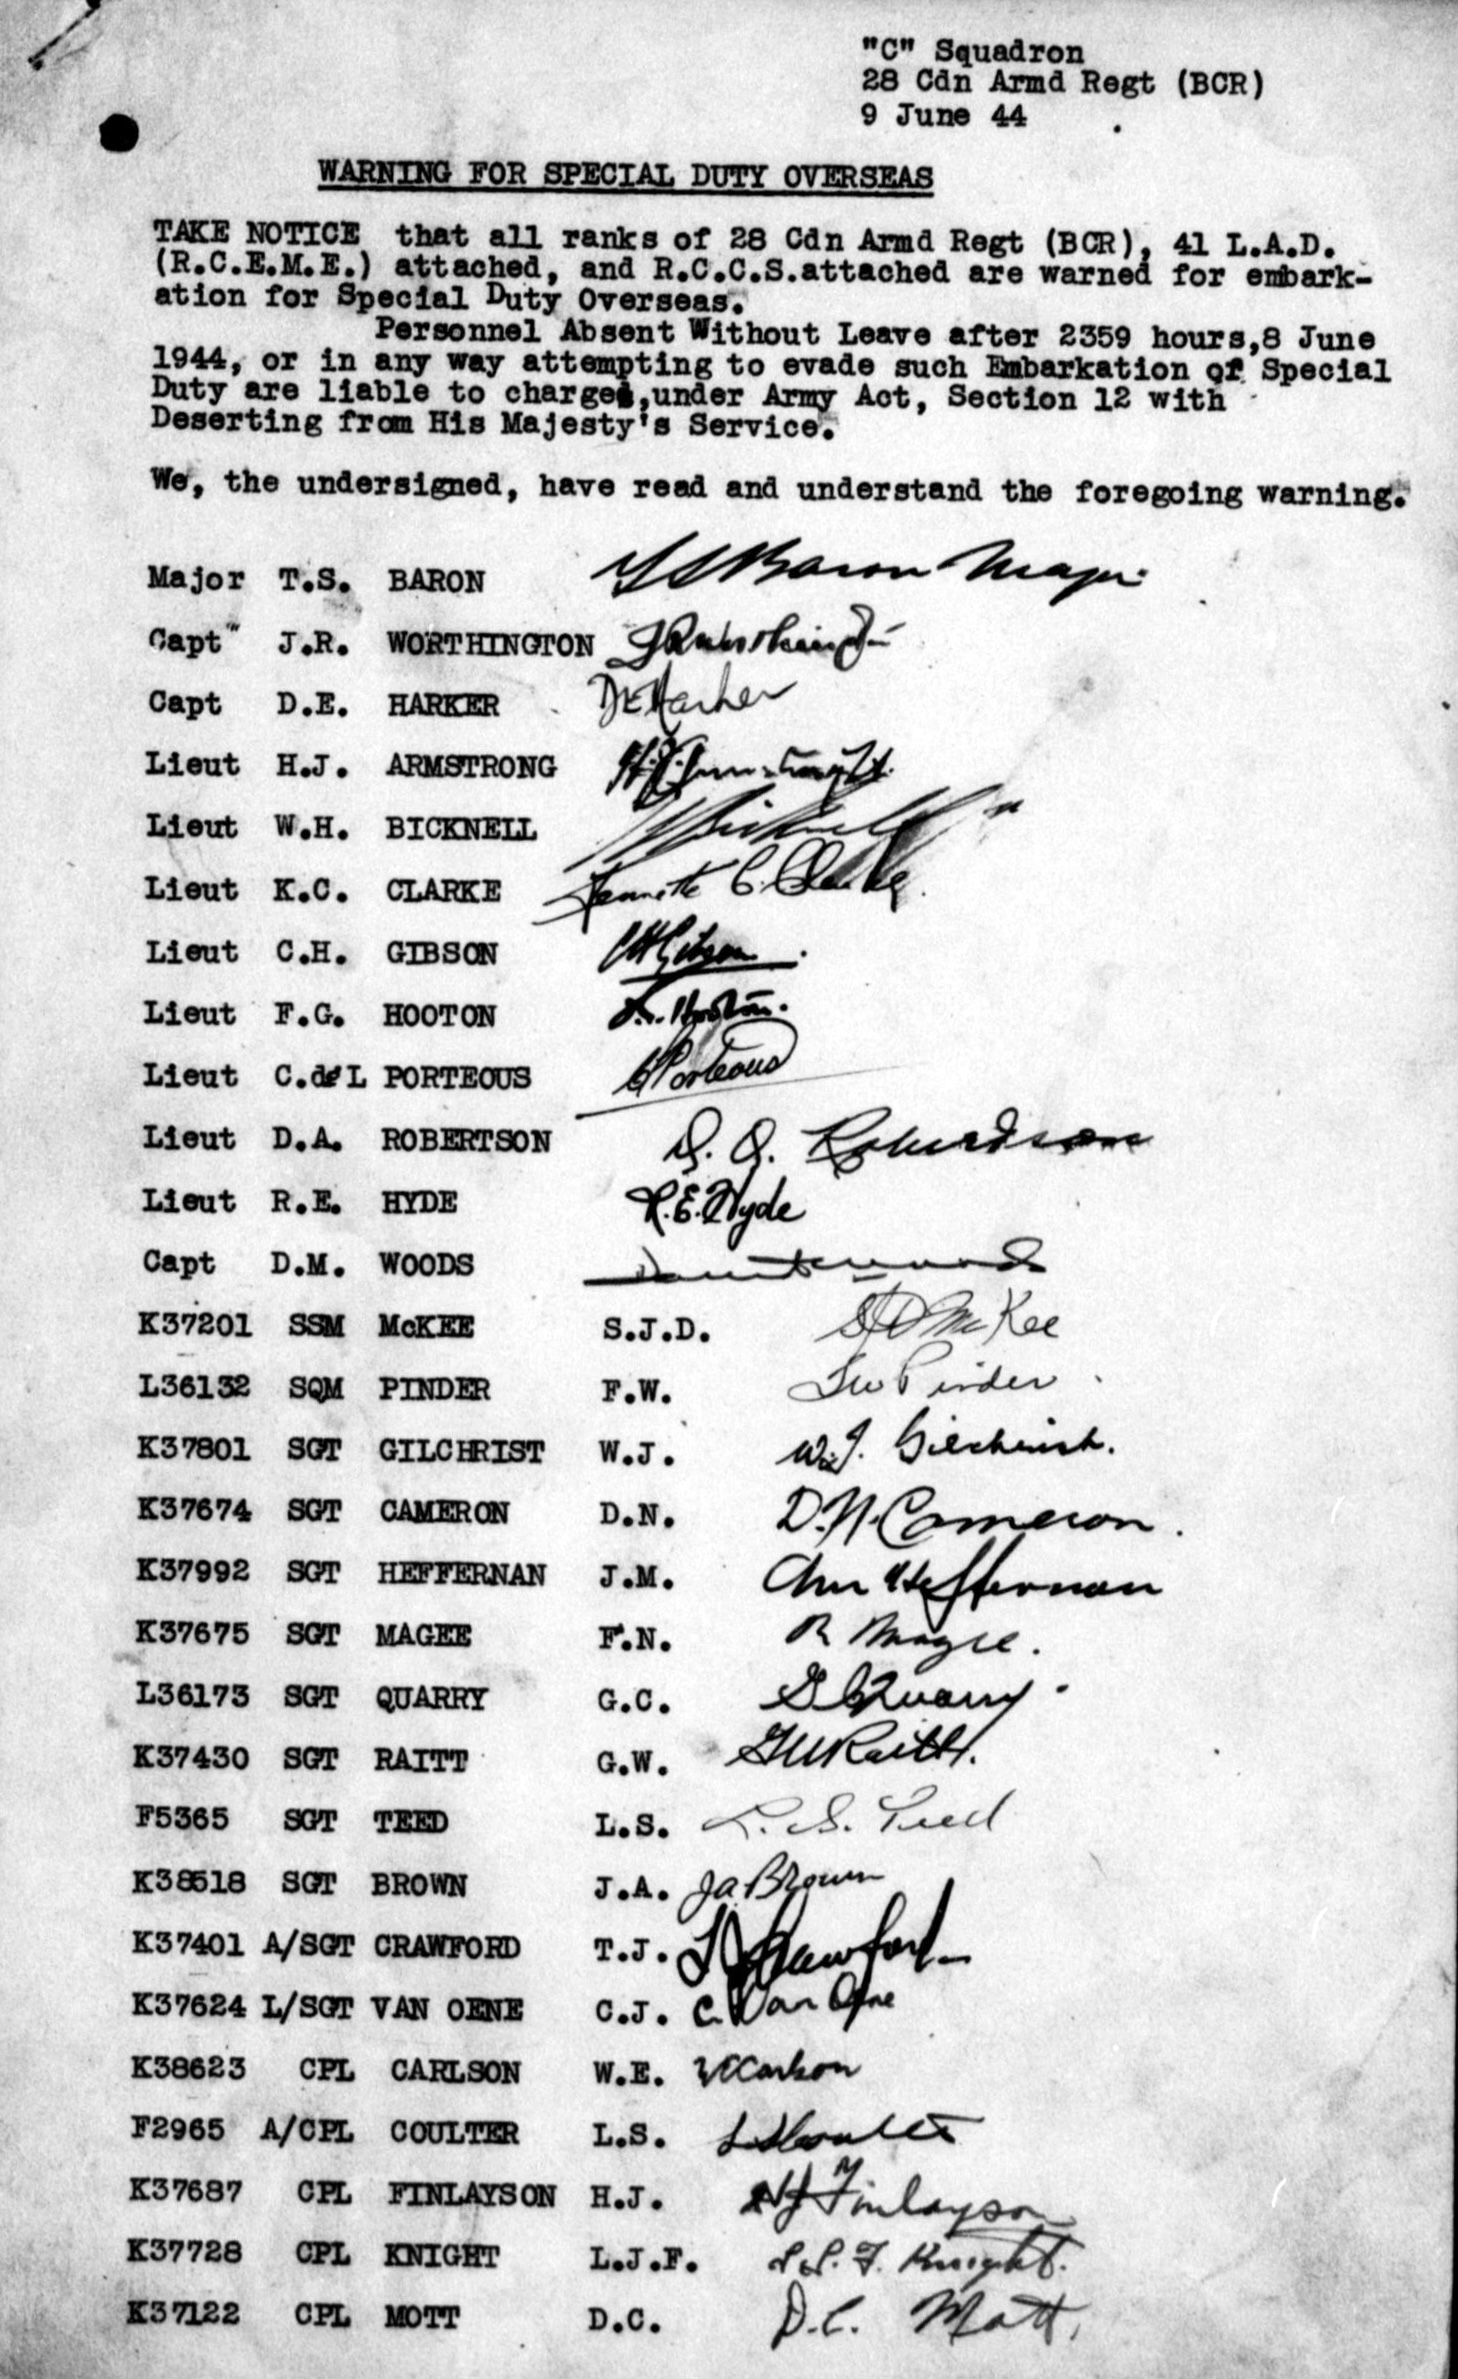 "C" Squadron
28 Cdn Armd Regt (BCR)
9 June 44
WARNING FOR SPECIAL DUTY OVERSEAS
TAKE NOTICE that all ranks of 28 Cdn Armd Regt (BCR), 41 L.A.D.
(R.C.E.M.E.) attached, and R.C.C.S.attached are warned for embark-
ation for Special Duty Overseas.
Personnel Absent Without Leave after 2359 hours,8 June
1944, or in any way attempting to evade such Embarkation of Special
Duty are liable to charges,under Army Act, Section 12 with
Deserting from His Majesty's Service.
We, the undersigned, have read and understand the foregoing warning.
Major T.S. BARON TS Baron Major
Capt J.R. WORTHINGTON
Capt D.E. HARKER DE Harker
Lieut H.J. ARMSTRONG
Lieut W.H. BICKNELL Bicknell
Lieut K.C. CLARKE Kenneth C. Clarke
Lieut C.H. GIBSON CH Gibson
Lieut F.G. HOOTON Hooton.
Lieut C.de L PORTEOUS Porteous
Lieut D.A. ROBERTSON D. A. Robertson
Lieut R.E. HYDE R.E. Hyde
Capt D.M. WOODS
K37201 SSM McKEE S.J.D. McKee
L36132 SQM PINDER F.W. FW Pinder
K37801 SGT GILCHRIST W.J. W.J. Gilchrist.
K37674 SGT CAMERON D.N. D.N. Cameron.
K37992 SGT HEFFERNAN J.M. Heffernan
K37675 SGT MAGEE F.N. Magee.
L36173 SGT QUARRY G.C. G C Quarry
K37430 SGT RAITT G.W. GW Raitt.
F5365 SGT TEED L.S. L. S. Teed
K38518 SGT BROWN J.A. JA Brown
K37401 A/SGT CRAWFORD T.J. TJ Crawford
K37624 L/SGT VAN OENE C.J. C. Van Oene
K38623 CPL CARLSON W.E. WE Carlson
F2965 A/CPL COULTER L.S. LS Coulter
K37687 CPL FINLAYSON H.J. HJ Finlayson
K37728 CPL KNIGHT L.J.F. L.J. F. Knight.
K37122 CPL MOTT D.C. D.C. Mott.